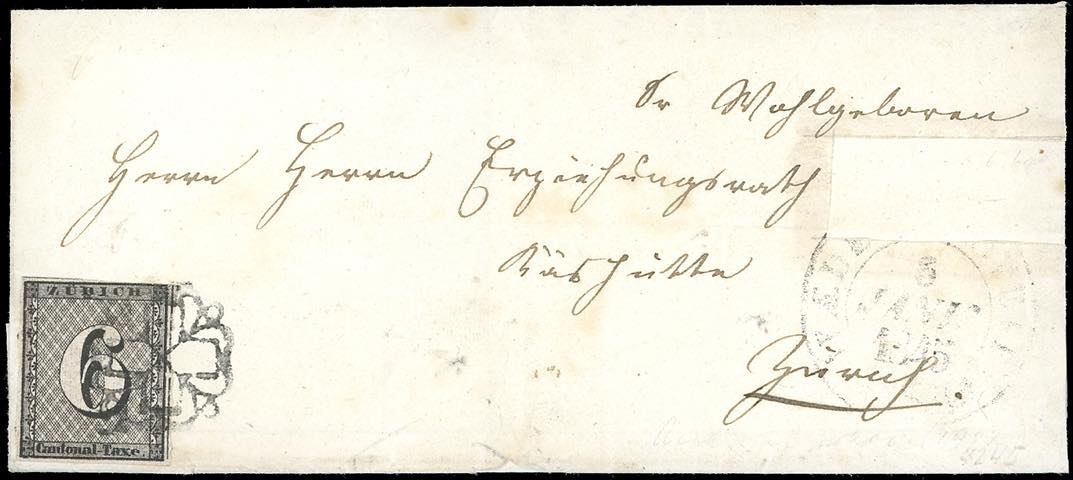 Sr Wohlgeboren
Herrn Herrn Erziehungsrath
Zürich.
ZÜRICH
6
Cantonal-Taxe.
JANV